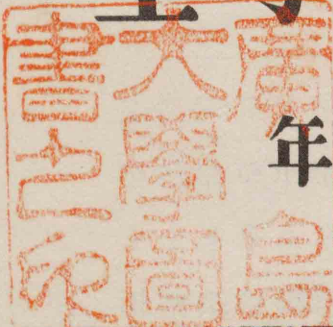 年
廣島
大學圖
書之印